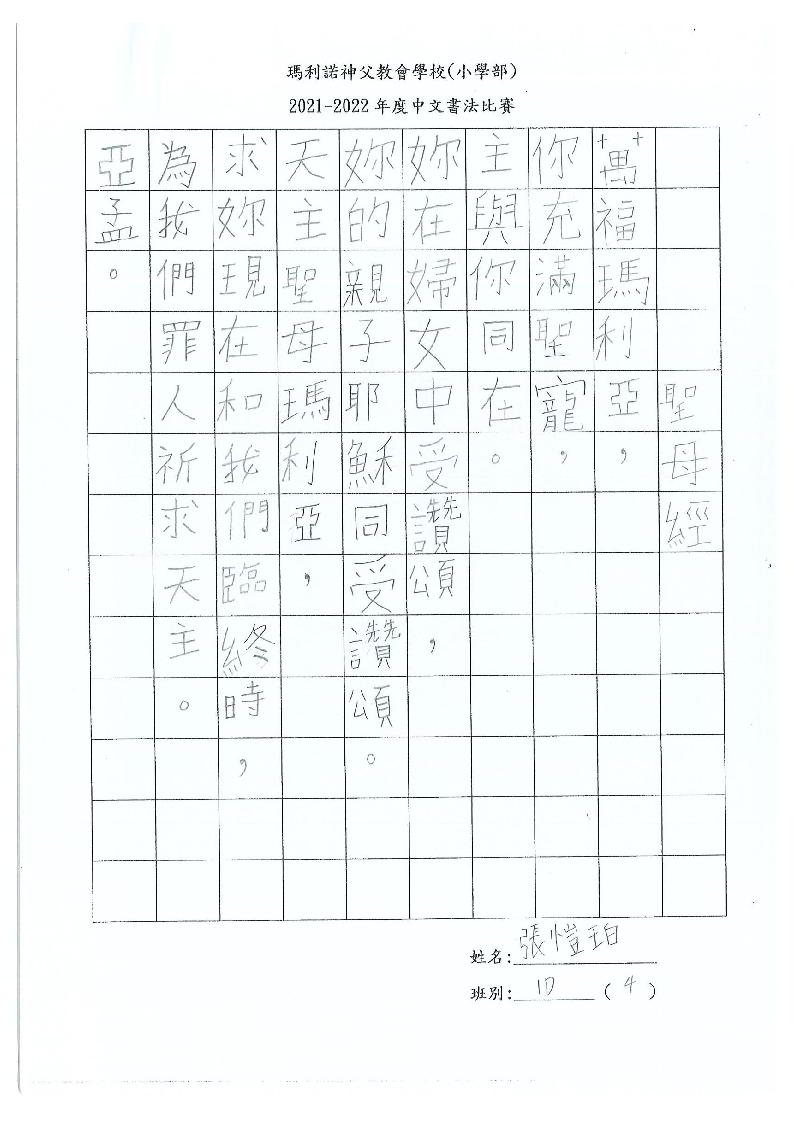 瑪利諾神父教會學校(小學部)
2021-2022年度中文書法比賽
聖母經
萬福瑪利亞,
你充滿聖寵,
主與你同在。
妳在婦女中受讚頌,
妳的親子耶穌同受讚頌。
天主聖母瑪利亞,
求妳現在和我們臨終時,
為我們罪人祈求天主。
亞孟。
姓名:張愷珀
班別:1D(4)